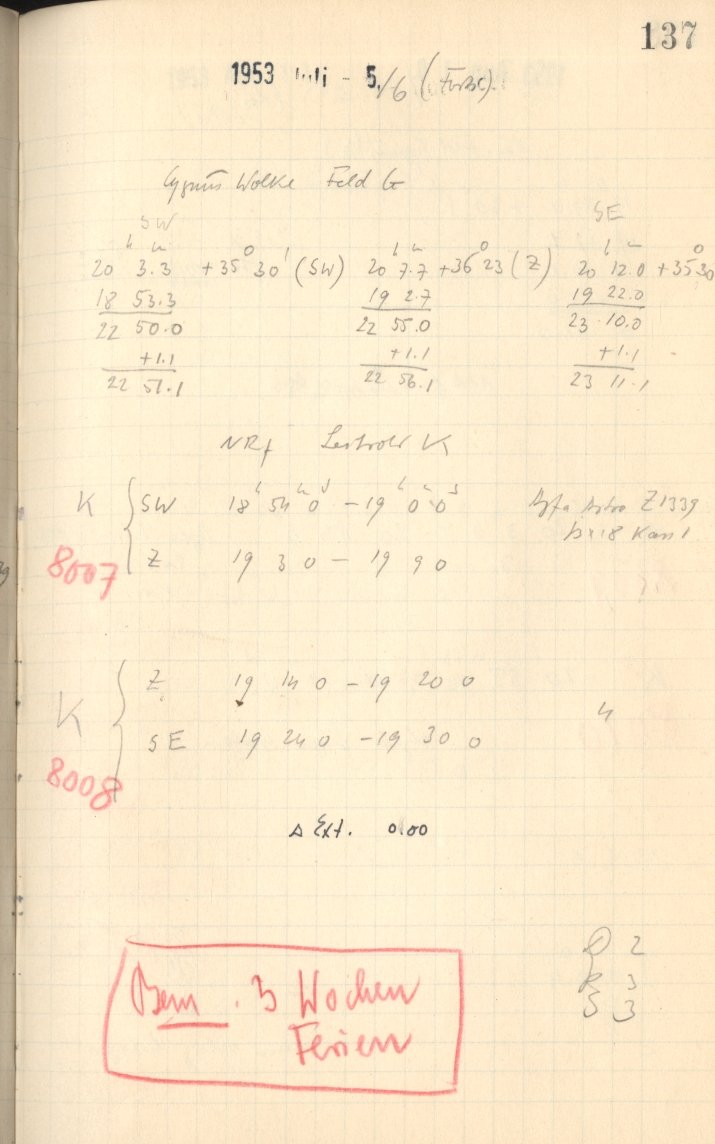 137
1953 Juli - 5./6 (Forts.)
Cygnus Wolke Feld G
SW SE
20 h 3.3 m +35° 30' (SW) 20 h 7.7 m +36° 23 (Z) 20 h 12.0 m +35° 30
18 53.3 19 2.7 19 22.0
22 50.0 22 55.0 23 10.0
+1.1 +1.1 +1.1
22 51.1 22 56.1 23 11.1
K
K { SW 18 h 54 m 0 s - 19 h 0 m 0 s Agfa Astro Z1339
18 Kass 1
8007 Z 19 3 0 - 19 9 0
K { Z 19 14 0 - 19 20 0
SE 19 24 0 - 19 30 0
8008
Δ Ext. 0.00
D 2
R 3
S 3
Bem. 3 Wochen
Ferien